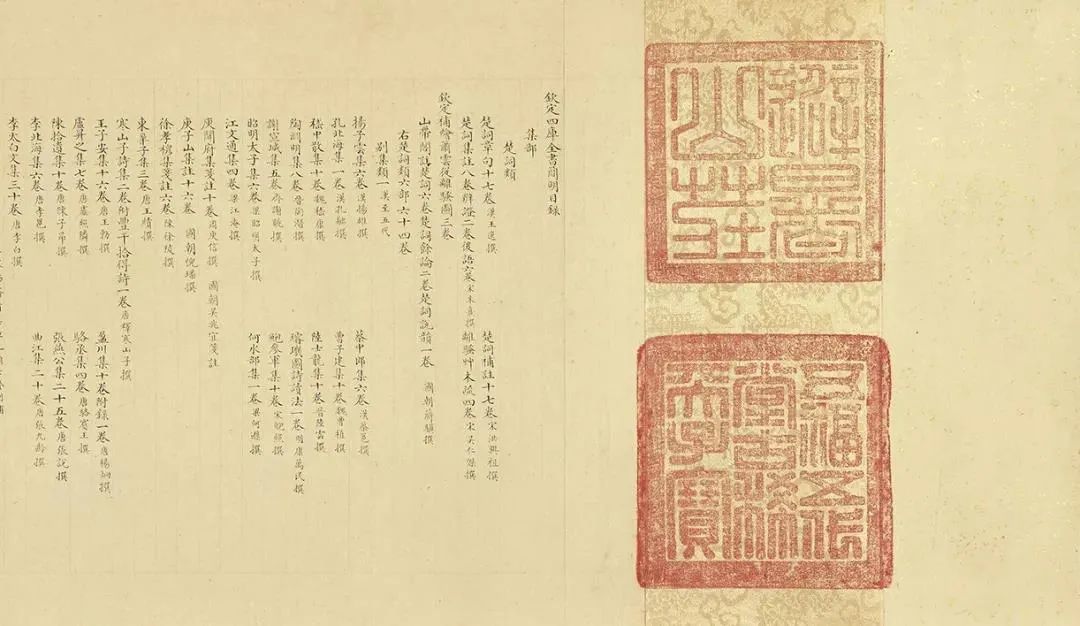 避暑
山莊
五福五代
堂古稀
天子寶
欽定四庫全書簡明目錄
集部
楚詞類
楚詞章句十七卷漢王逸撰 楚詞補註十七卷宋洪興祖撰
楚詞集註八卷辨證二卷後語六卷宋朱熹撰 離騷艸木疏四卷宋吳仁傑撰
欽定補繪蕭雲從離騷圖三卷
山帶閣註楚詞六卷楚詞餘論二卷楚詞説韻一卷 國朝蔣驥撰
右楚詞類六部六十四卷
別集類一漢至五代
揚子雲集六卷漢揚雄撰 蔡中郎集六卷漢蔡邕撰
孔北海集一卷漢孔融撰 曹子建集十卷魏曹植撰
嵇中散集十卷魏嵇康撰 陸士龍集十卷晉陸雲撰
陶淵明集八卷晉陶潛撰 璿璣圖詩讀法一卷明康萬民撰
謝宣城集五卷齊謝朓撰 鮑參軍集十卷宋鮑照撰
昭明太子集六卷梁昭明太子撰 何水部集一卷梁何遜撰
江文通集四卷梁江淹撰
庾開府集箋註十卷周庾信撰 國朝吳兆宜箋註
庾子山集註十六卷 國朝倪璠撰
徐孝穆集箋註六卷陳徐陵撰
東皋子集三卷唐王績撰
寒山子詩集二卷附豐干拾得詩一卷唐釋寒山子撰
王子安集十六卷唐王勃撰 盈川集十卷附錄一卷唐楊炯撰
盧昇之集七卷唐盧照鄰撰 駱丞集四卷唐駱賓王撰
陳拾遺集十卷唐陳子昂撰 張燕公集二十五卷唐張說撰
李北海集六卷唐李邕撰 曲江集二十卷唐張九齡撰
李太白文集三十卷唐李白撰